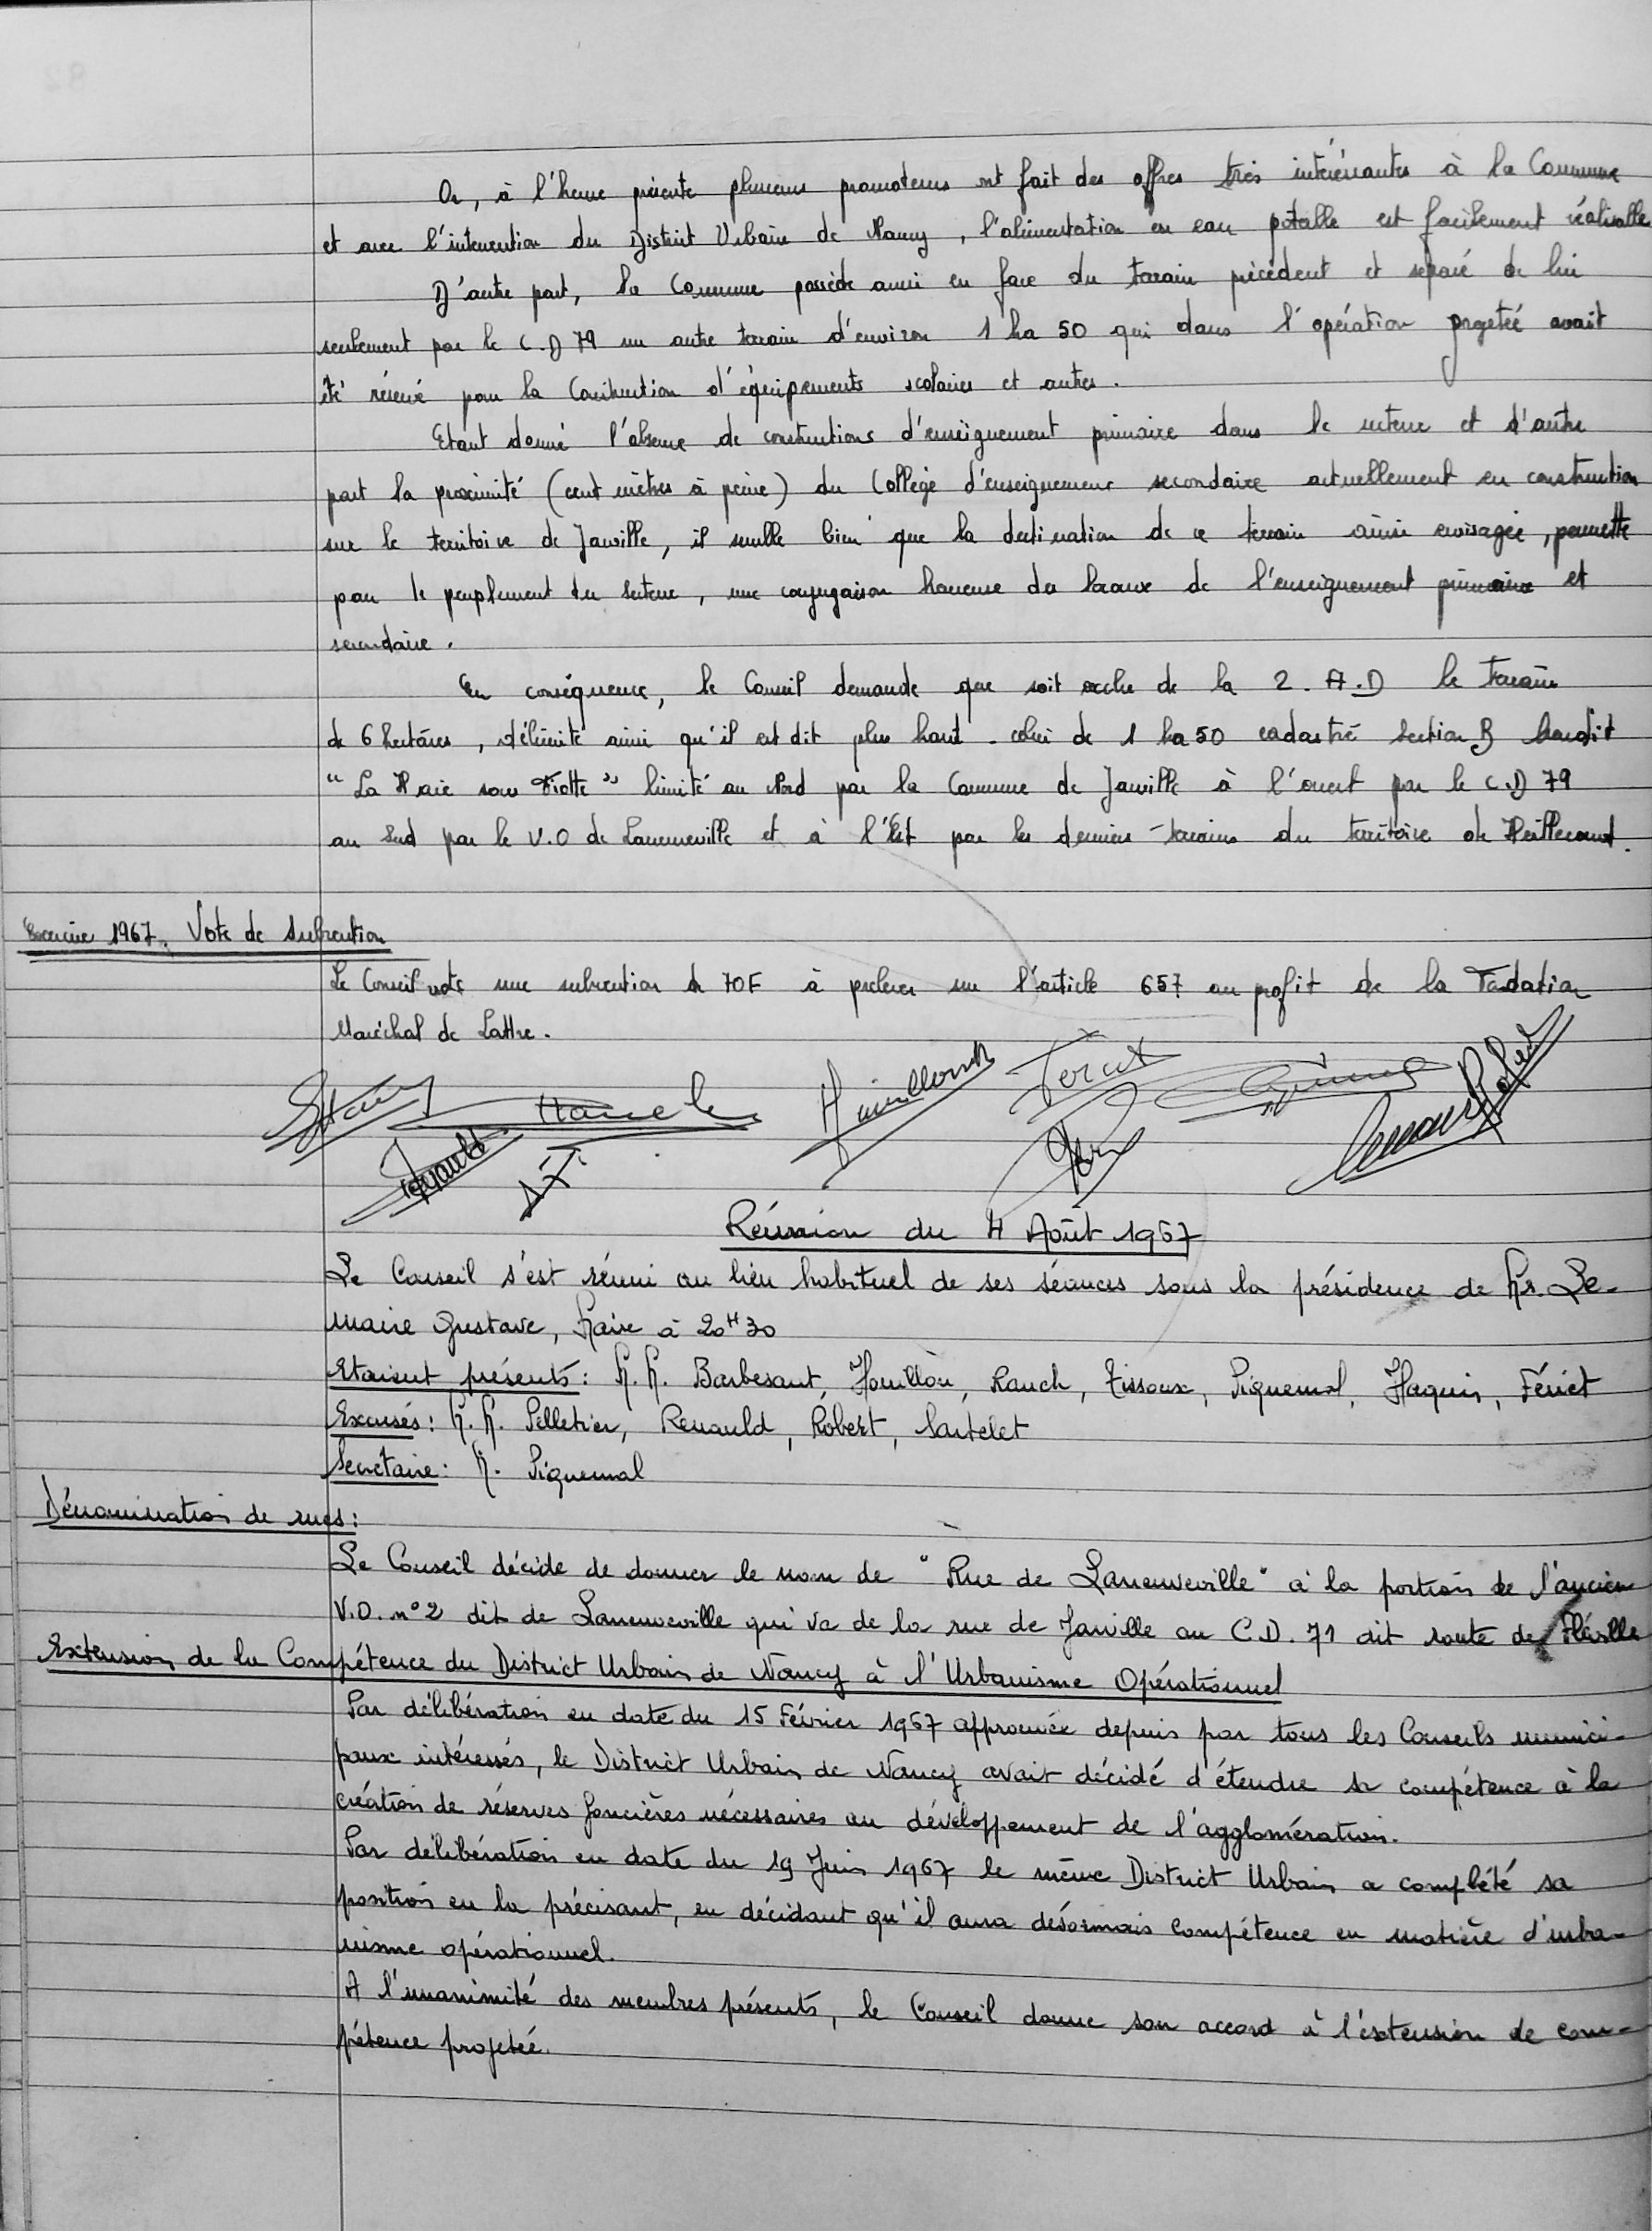 Or, à l'heure présente plusieurs promoteurs ont fait des offres très intéressantes à la Commune
et avec l'intervention du District Urbain de Nancy, l'alimentation en eau potable est facilement réalisable
D'autre part, la Commune possède aussi en face du terrain précédent et séparé de lui
seulement par le C.D 79 un autre terrain d'environ 1 ha 50 qui dans l'opération projetée avait
été réservé pour la Construction d'équipements scolaires et autres.
Etant donné l'absence de constructions d'enseignement primaire dans le secteur et d'autre
part la proximité (cent mètres à peine) du Collège d'enseignement secondaire actuellement en construction
sur le territoire de Jarville, il semble bien que la destination de ce terrain ainsi envisagée, permette
pour le peuplement du secteur, une conjugaison heureuse des locaux de l'enseignement primaire et
secondaire.
En conséquence, le Conseil demande que soit exclu de la Z.A.D le terrain
de 6 hectares, délimité ainsi qu'il est dit plus haut - celui de 1 ha 50 cadastré Section B lieudit
"La Haie sous" limité au Nord par la Commune de Jarville à l'ouest par le C.D 79
au Sud par le V.O de Laneuveville et à l'Est par les derniers terrains du territoire de Heillecourt.
Exercice 1967. Vote de Subvention
Le Conseil vote une subvention de 70F à prélever sur l'article 657 au profit de la Fondation
Maréchal de Lattre.
Houillon Feriet
Renauld
Réunion du 4 Août 1967
Le Conseil s'est réuni au lieu habituel de ses séances sous la présidence de Mr. Le-
maire Gustave, Maire à 20H30
Etaient présents: M.M. Barbesant, Houillon, Rauch, Tissoux, Piquemal, Haquin, Fériet
Excusés: M.M. Pelletier, Renauld, Robert, Sartelet
Secrétaire: M. Piquemal
Dénomination de rues:
Le Conseil décide de donner le nom de "Rue de Laneuveville" à la portion de l'ancien
V.O. n°2 dit de Laneuveville qui va de la rue de Jarville au C.D. 71 dit route de Fléville
Extension de la Compétence du District Urbain de Nancy à l'Urbanisme Opérationnel
Par délibération en date du 15 Février 1967 approuvée depuis par tous les Conseils munici-
paux intéressés, le District Urbain de Nancy avait décidé d'étendre sa compétence à la
création de réserves foncières nécessaires au développement de l'agglomération.
Par délibération en date du 19 Juin 1967 le même District Urbain a complété sa
position en la précisant, en décidant qu'il aura désormais compétence en matière d'urba-
nisme opérationnel.
A l'unanimité des membres présents, le Conseil donne son accord à l'extension de com-
pétence projetée.